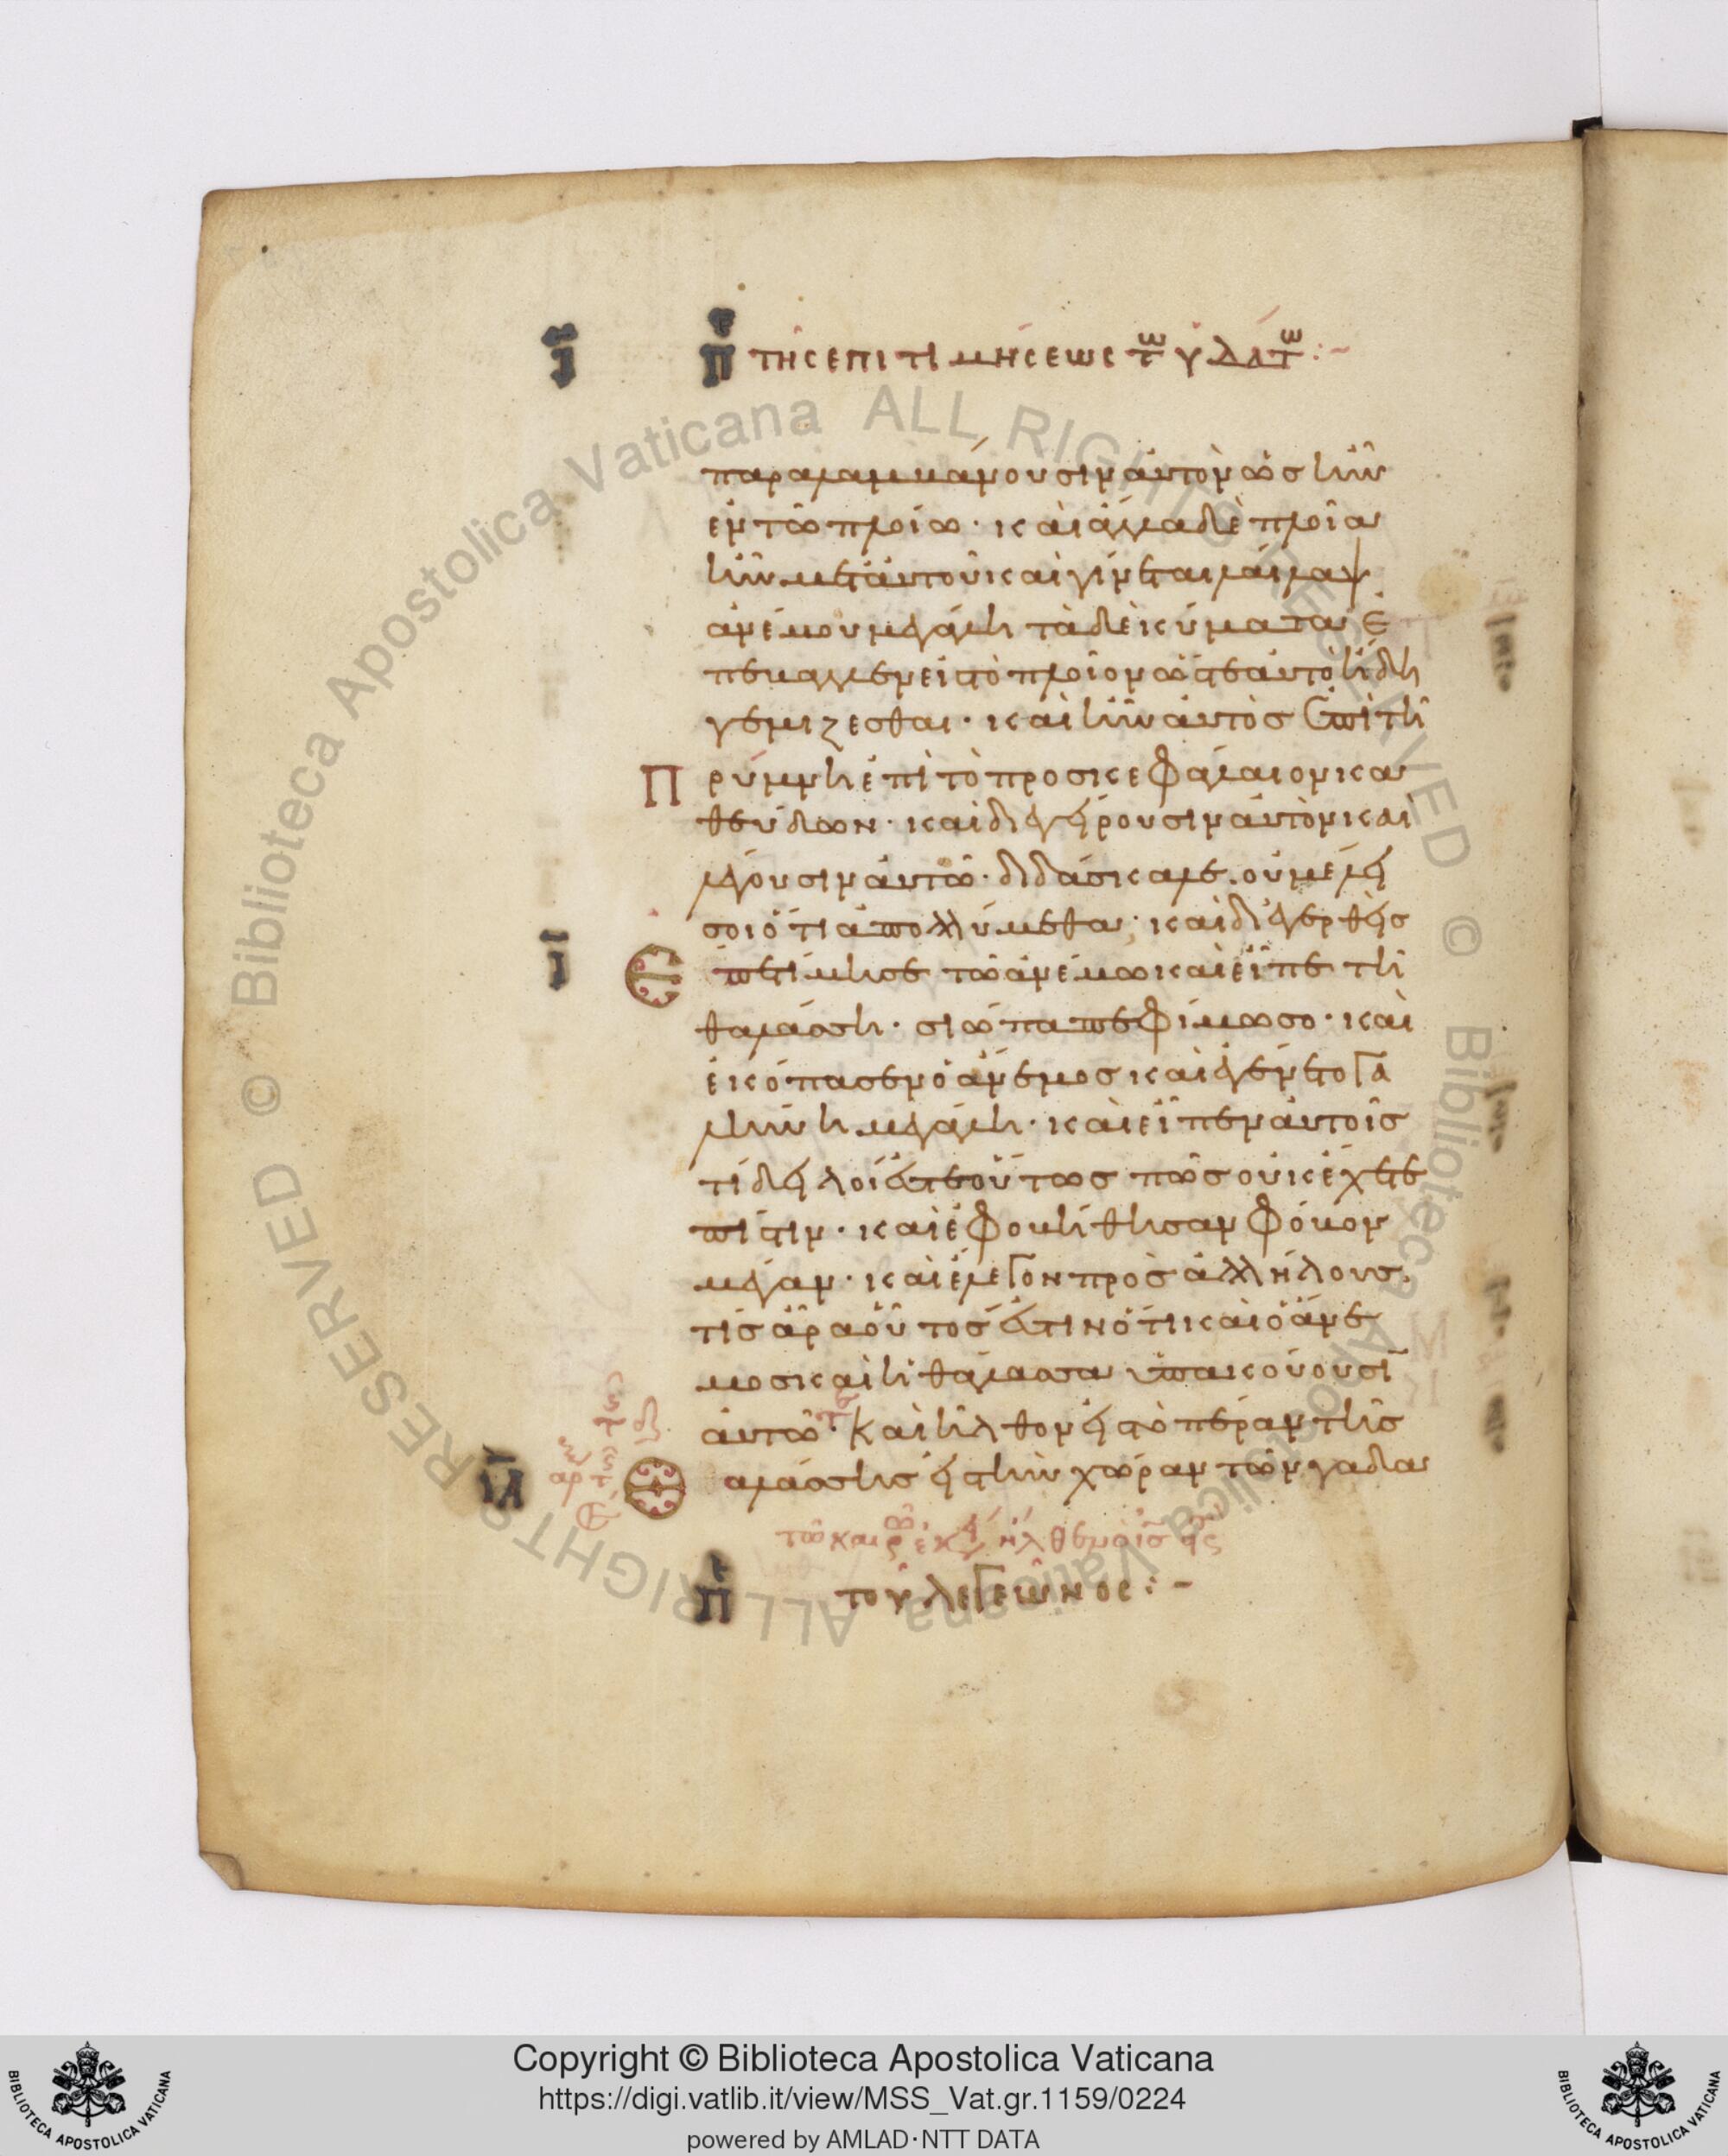 Ῑ Π̄ε τῆς ἐπιτιμήσεως τῶ ὑδάτω :~
παραλαμβάνουσιν ἀυτὸν ὡς ἦν
ἐν τῶ πλοίω· καὶ ἄλλα δὲ πλοῖα
ἦν μετ' ἀυτοῦ καὶ γίνεται λαίλαψ
ἀνέμου μεγάλη τὰ δὲ κύματα ἐ
πέβαλλεν εἰς τὸ πλοῖον ὥστε ἀυτὸ ἤδη
γεμίζεσθαι· καὶ ἦν ἀυτὸς ἐπὶ τῆ
Πρύμνη ἐπὶ τὸ προσκεφάλαιον κα
θεύδων· καὶ διεγείρουσιν ἀυτὸν καὶ
λέγουσιν ἀυτῶ· διδάσκαλε. οὐ μέλει
σοι ὅτι ἀπολλύμεθα· καὶ διεγερθεὶς
Ῑ Ἐπετίμησε τῶ ἀνέμω καὶ εἶπε τῆ
θαλάσση· σιώπα πεφίμωσο· καὶ
ἐκόπασεν ὁ ἄνεμος καὶ ἐγένετο γα
λήνη μεγάλη· καὶ εἶπεν ἀυτοῖς
τί δειλοί ἐστε οὕτως πῶς οὐκ ἔχετε
πίστιν· καὶ ἐφοβήθησαν φόβον
μέγαν· καὶ ἔλεγον πρὸς ἀλλήλους.
τίς ἄρα οὗτος ἐστιν ὅτι καὶ ὁ ἄνε
μος καὶ ἡ θάλασσα ὑπακούουσῑ
ἀυτῶ· Καὶ ἦλθον εἰς τὸ πέραν τῆς
Θαλάσσης εἰς τὴν χώραν τῶν γαδα
τῶ καιρ ἐκ ἦλθεν ὁ ις εἰς
Π̄ τοῦ λεγεῶνος :~
Copyright © Biblioteca Apostolica Vaticana
https://digi.vatlib.it/view/MSS_Vat.gr.1159/0224
powered by AMLAD·NTT DATA